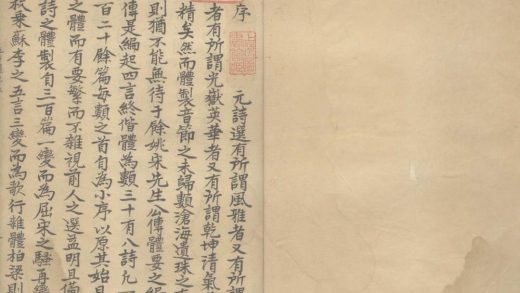 序
元詩選有所謂風雅者又有所謂
者有所謂光嶽英華者又有所謂乾坤清氣
精矣然而體製音節之未歸類滄海遺珠之
則猶不能無待于餘姚宋先生公傳體要之編
傳是編起四言終偕體為類三十有八詩凡
百二十餘篇每類之首自為小序以原其始
之體而有要繁而不雜視前人之選益明且備
詩之體製自三百篇一變而為屈宋之騷再變
秋乗蘇李之五言三變而為歌行雜體柏梁則